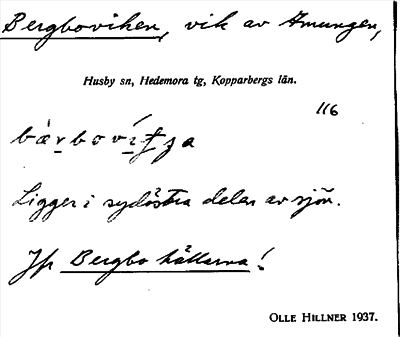 Bergboviken, vik av Amungen,
Husby sn, Hedemora tg, Kopparbergs län.
116
Ligger i sydöstra delen av sjön.
Jfr Bergbohällarna!
OLLE HILLNER 1937.